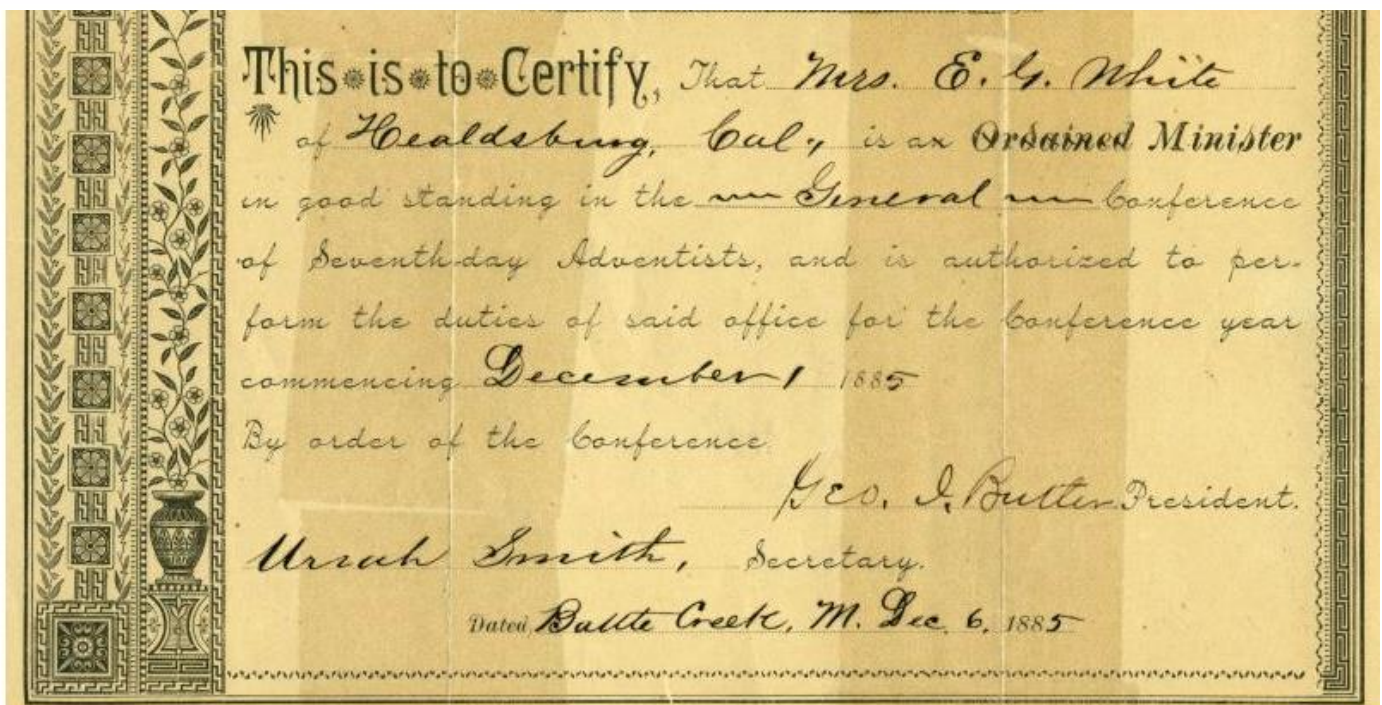 This is to Certify, That Mrs. E. G. White
of Healdsburg, Cal., is an Ordained Minister
in good standing in the General Conference
of Seventh-day Adventists, and is authorized to per-
form the duties of said office for the Conference year
commencing December 1 1885
By order of the Conference.
Geo. I. Butler President.
Uriah Smith, Secretary.
Dated, Battle Creek, M. Dec. 6, 1885